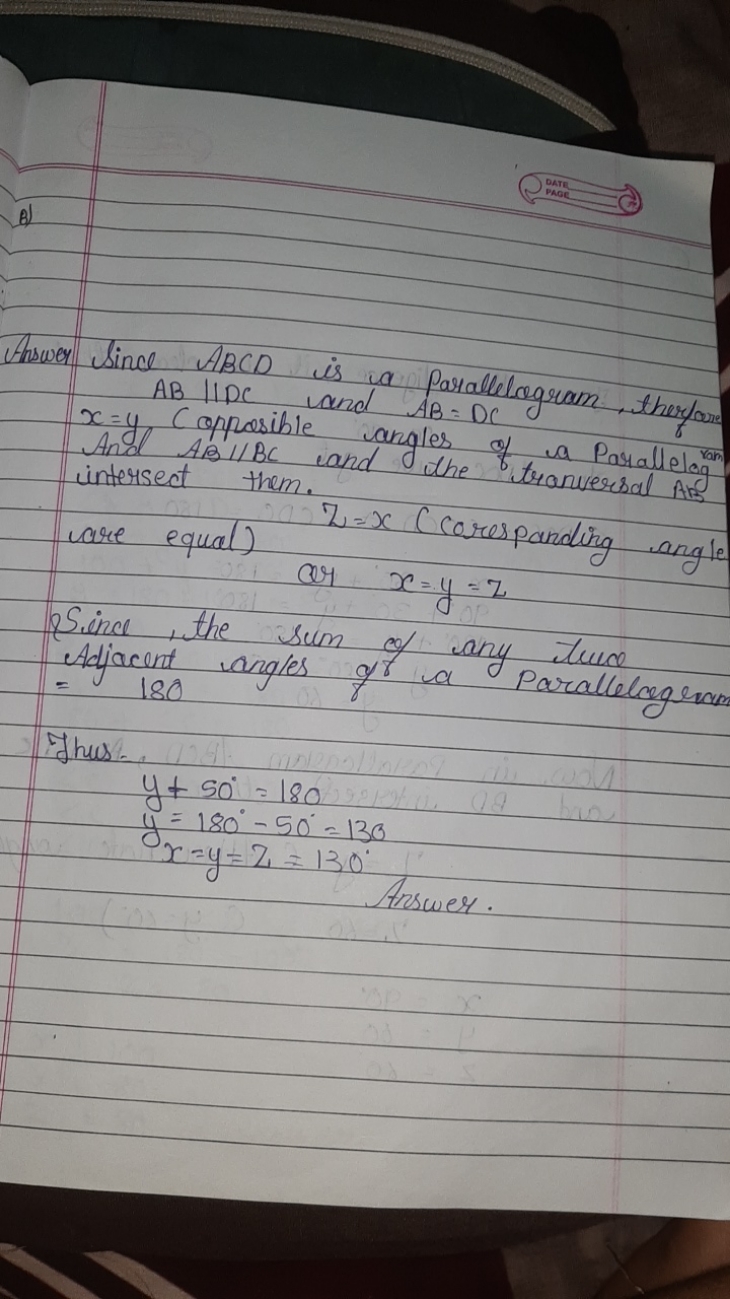 DATE
PAGE
B)
Answer Since ABCD is a Parallelogram, therfore
AB || DC and AB = DC
x = y ( oppasible angles of a Parallelogram
And AB // BC and the tranversal AB
intersect them.
Z = x ( corespanding angle
are equal)
or x = y = z
Since, the sum of any two
Adjacent angles of a Parallelogeram
= 180
Thus.
y + 50° = 180
y = 180° - 50° = 130
x = y = Z = 130°
Answer.